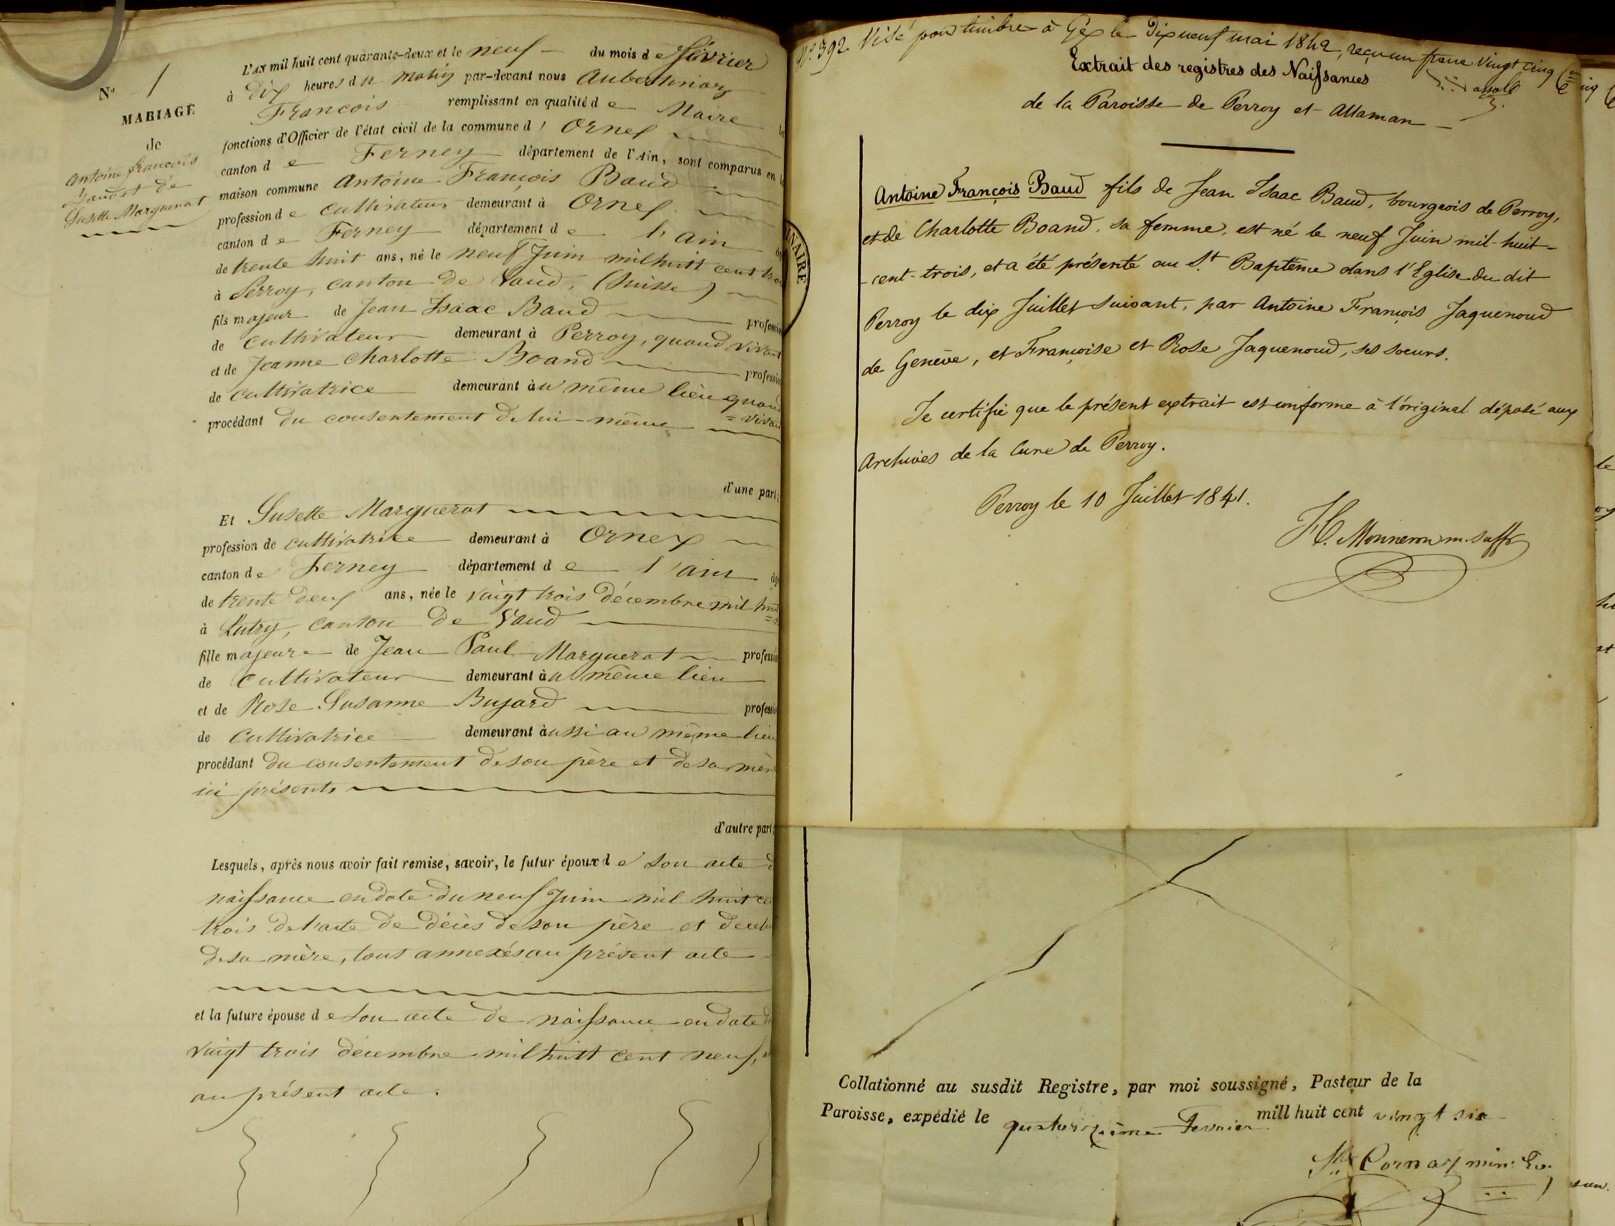 N° 1
MARIAGE
de
Antoine françois
Baud et de
Susette Marguerat
L'AN mil huit cent quarante-deux et le neuf du mois de février
à dix heures du matin par-devant nous
François remplissant en qualité de Maire
fonctions d'Officier de l'état civil de la commune d' Ornex
canton de Ferney département de l'Ain, sont comparus en
maison commune Antoine François Baud
profession de cultivateur demeurant à Ornex
canton de Ferney département de l'ain
de trente huit ans, né le neuf Juin mil huit cent
à Perroy, canton de Vaud, (Suisse)
fils majeur de Jean Isaac Baud
de cultivateur demeurant à Perroy, quand vivant
et de Jeanne Charlotte Boand
de cultivatrice demeurant au même lieu
procédant du consentement de lui-même
d'une part;
Et Susette Marguerat
profession de cultivatrice demeurant à Ornex
canton de Ferney département de l'ain
de trente deux ans, née le vingt trois décembre mil
à Lutry, canton de Vaud
fille majeure de Jean Paul Marguerat
de cultivateur demeurant au même lieu
et de Rose Susanne Bujard
de cultivatrice demeurant aussi au même lieu
procédant du consentement de son père et de sa
ici présents
d'autre part;
Lesquels, après nous avoir fait remise, savoir, le futur époux de son acte
naissance en date du neuf Juin mil huit
trois de l'acte de décès de son père et
de sa mère, tous annexés au présent acte
et la future épouse de son acte de naissance en date
vingt trois décembre mil huit cent neuf,
au présent acte.
N° 392 Visé pour timbre à Gex le Dix neuf mai 1842, reçu un franc vingt cinq
Extrait des registres des Naissances
de la Paroisse de Perroy et Allaman
Antoine François Baud fils de Jean Isaac Baud, bourgeois de Perroy,
et de Charlotte Boand, sa femme, est né le neuf Juin mil-huit-
-cent-trois, et a été présenté au St. Baptême dans l'Eglise du dit
Perroy le dix Juillet suivant, par Antoine François Jaquenoud
de Genève, et Françoise et Rose Jaquenoud, ses soeurs.
Je certifie que le présent extrait est conforme à l'original déposé aux
Archives de la Cure de Perroy.
Perroy le 10 Juillet 1841.
H. Monneron m. suffr
Collationné au susdit Registre, par moi soussigné, Pasteur de la
Paroisse, expédié le quatorzième Fevrier mill huit cent vingt six